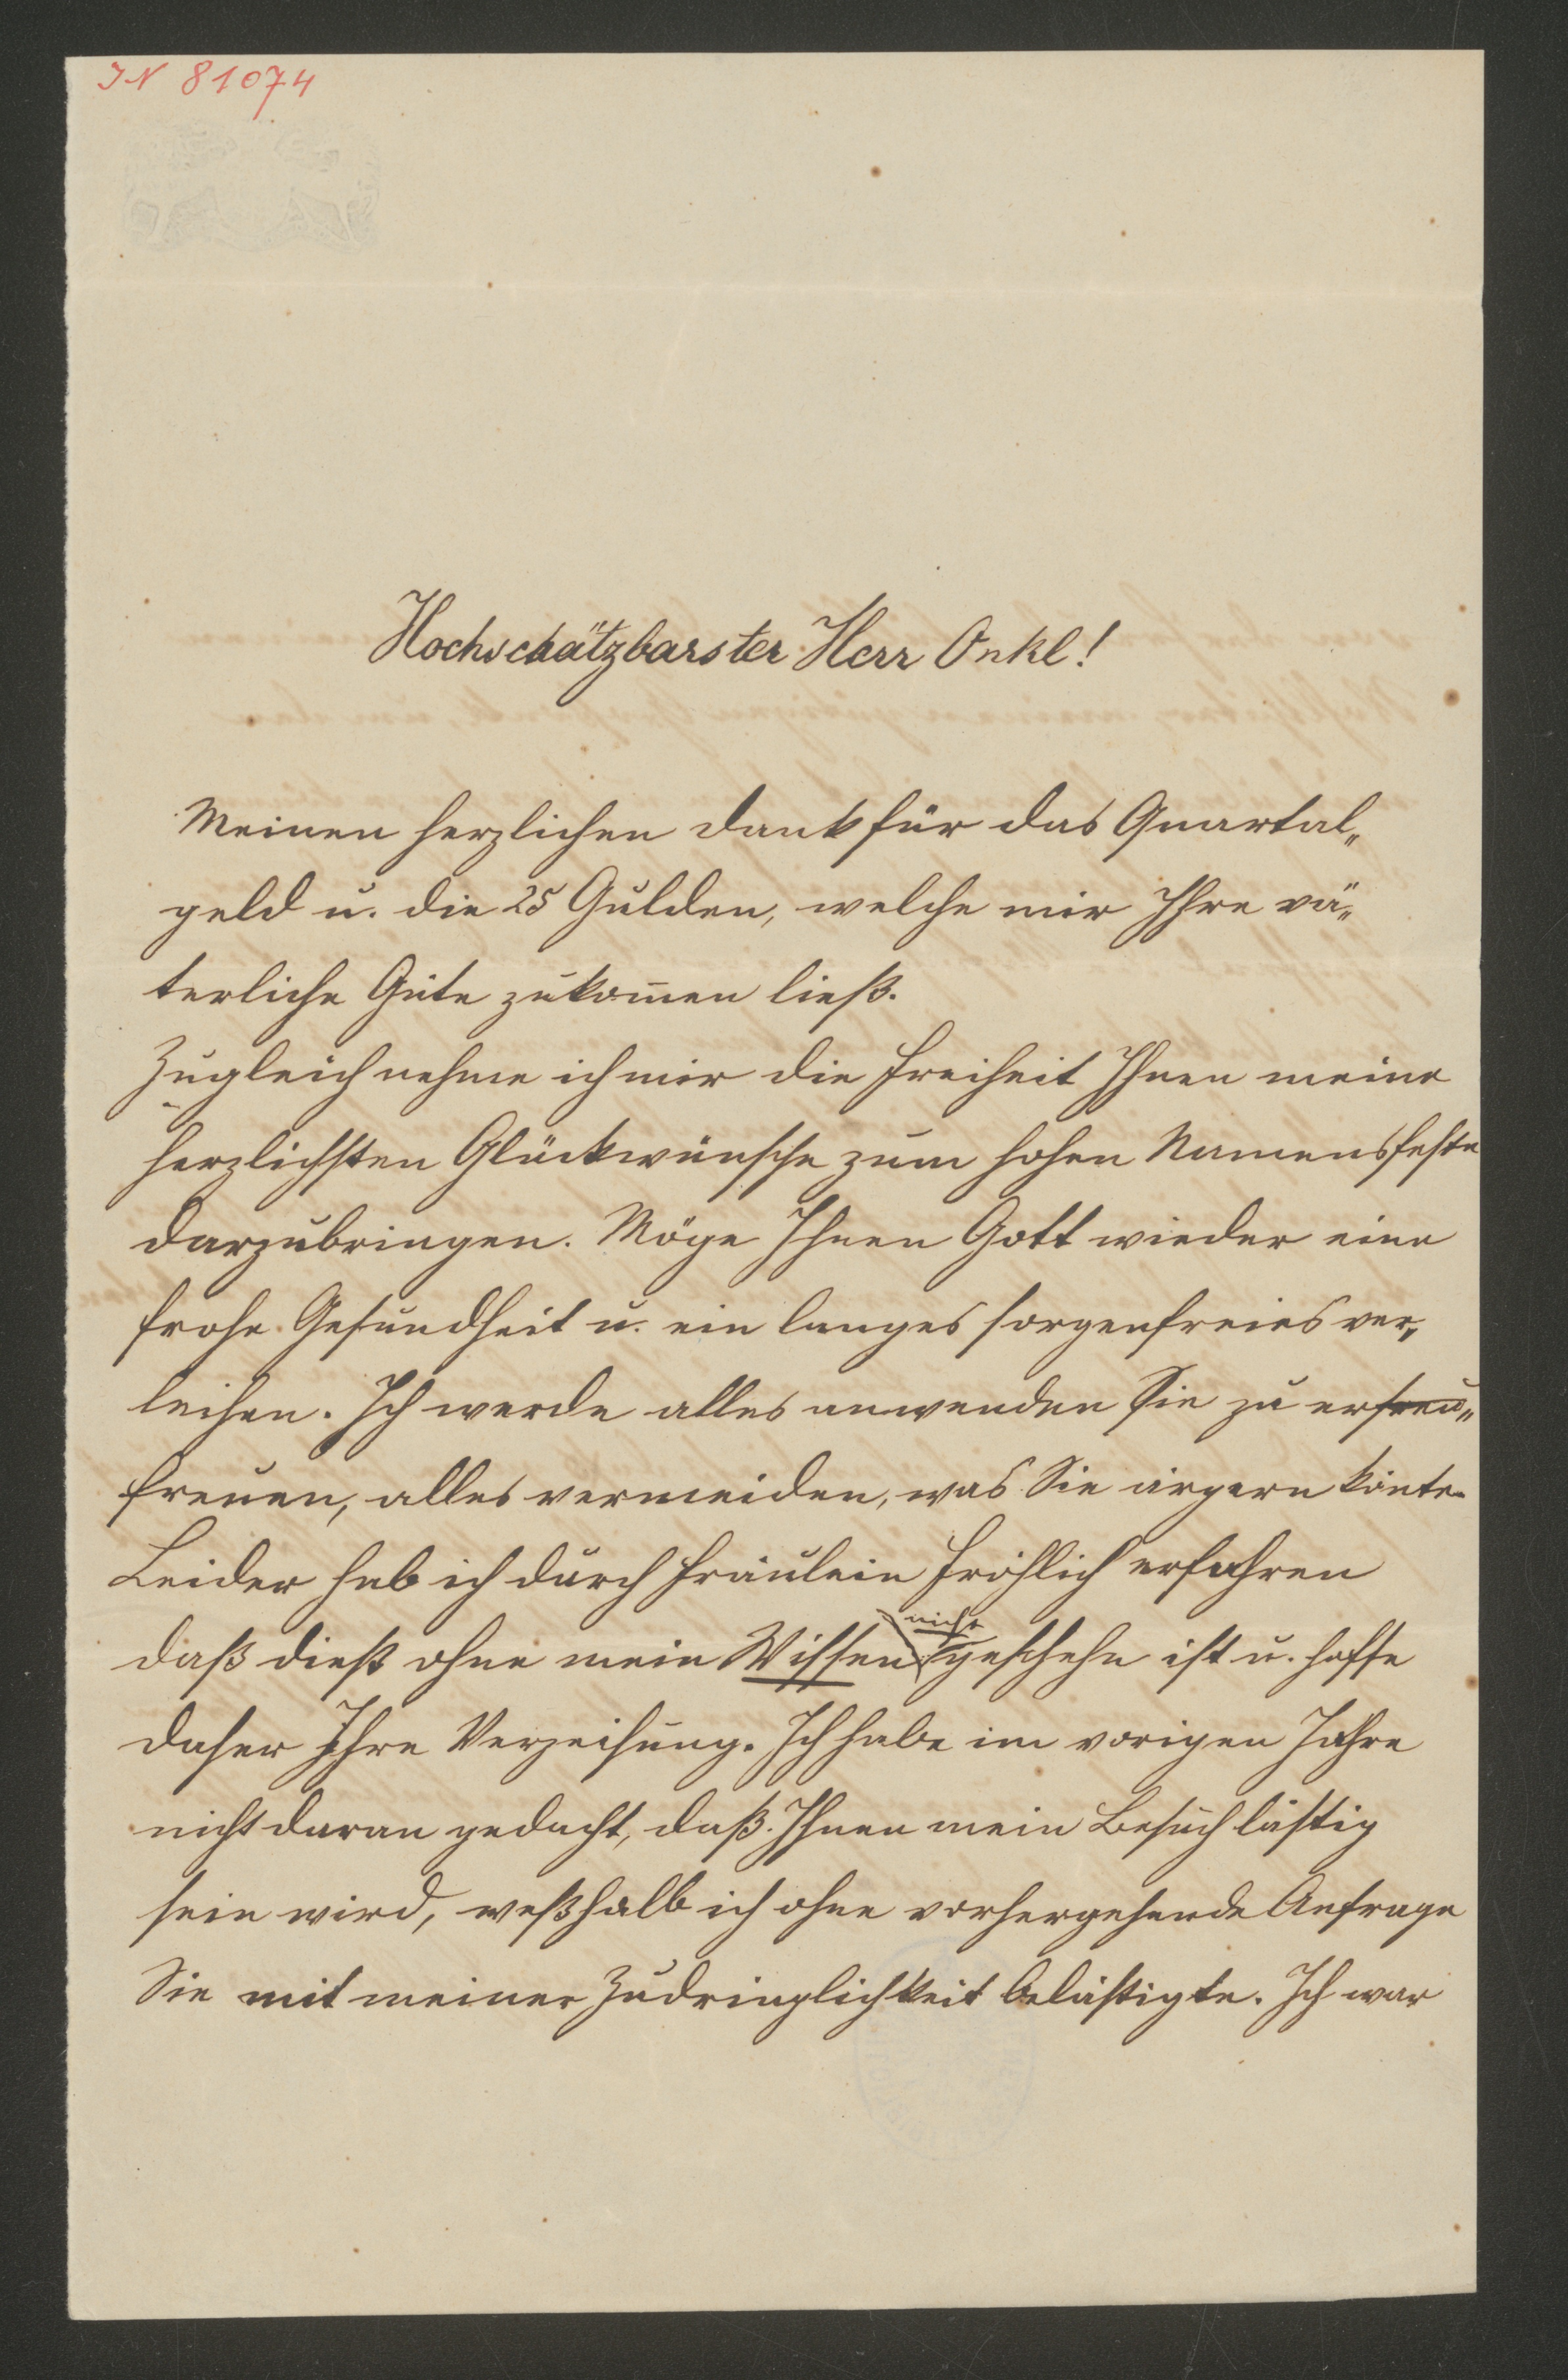 IN 81074
Hochschätzbarster Herr Onkl!
Meinen herzlichen Dank für das Quartal„
geld u. die 25 Gulden, welche mir Ihre vä„
terliche Güte zukom̄en ließ.
Zugleich nehme ich mir die Freiheit Ihnen meine
herzlichsten Glückwünsche zum hohen Namensfeste
darzubringen. Möge Ihnen Gott wieder eine
frohe Gesundheit u. ein langes sorgenfreies ver„
leihen. Ich werde alles anwenden Sie zu erfreu„
freuen, alles vermeiden, was Sie ärgern könte.
Leider hab ich durch Fräulein Fröhlich erfahren
daß dieß ohne mein Wissen nicht geschehn ist u. hoffe
daher Ihre Verzeihung. Ich habe im vorigen Jahre
nicht daran gedacht, daß Ihnen mein Besuch lästig
sein wird, weßhalb ich ohne vorhergehende Anfrage
Sie mit meiner Zudringlichkeit belästigte. Ich war